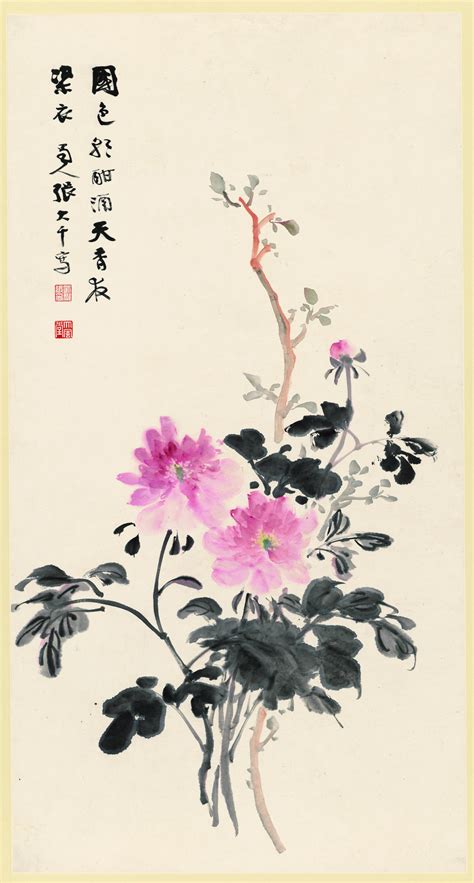 國色朝酣酒天香夜
染衣 蜀人張大千寫